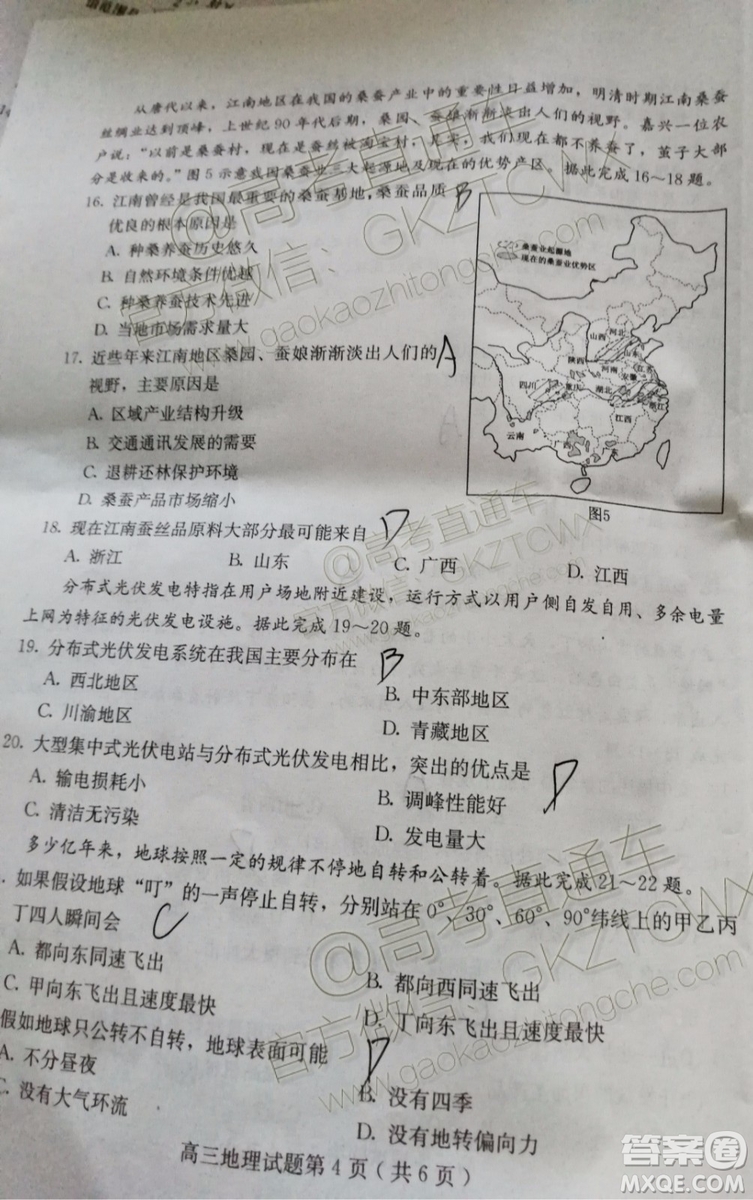 从唐代以来，江南地区在我国的桑蚕产业中的重要性日益增加，明清时期江南桑蚕
丝绸业达到顶峰，上世纪90年代后期，桑园、蚕娘渐渐淡出人们的视野。嘉兴一位农
户说：“以前是桑蚕村，现在是蚕丝被淘宝村，是实，我们现在都不养蚕了，茧子大部
分是收来的。”图5示意我国桑蚕业三大起源地及现在的优势产区。据此完成16～18题。
16. 江南曾经是我国最重要的桑蚕基地，桑蚕品质 B
优良的根本原因是
A. 种桑养蚕历史悠久
B. 自然环境条件优越
C. 种桑养蚕技术先进
D. 当地市场需求量大
桑蚕业起源地
现在的桑蚕业优势区
山西
河北
山东
陕西
河南
江苏
安徽
四川
重庆
湖北
浙江
江西
云南
广西
广东
图5
17. 近些年来江南地区桑园、蚕娘渐渐淡出人们的 A
视野，主要原因是
A. 区域产业结构升级
B. 交通通讯发展的需要
C. 退耕还林保护环境
D. 桑蚕产品市场缩小
18. 现在江南蚕丝品原料大部分最可能来自 D
A. 浙江 B. 山东 C. 广西 D. 江西
分布式光伏发电特指在用户场地附近建设，运行方式以用户侧自发自用、多余电量
上网为特征的光伏发电设施。据此完成19～20题。
19. 分布式光伏发电系统在我国主要分布在 B
A. 西北地区 B. 中东部地区
C. 川渝地区 D. 青藏地区
20. 大型集中式光伏电站与分布式光伏发电相比，突出的优点是 D
A. 输电损耗小 B. 调峰性能好
C. 清洁无污染 D. 发电量大
多少亿年来，地球按照一定的规律不停地自转和公转着。据此完成21～22题。
. 如果假设地球“叮”的一声停止自转，分别站在0°、30°、60°、90°纬线上的甲乙丙
丁四人瞬间会 C
A. 都向东同速飞出 B. 都向西同速飞出
C. 甲向东飞出且速度最快 D. 丁向东飞出且速度最快
假如地球只公转不自转，地球表面可能 D
A. 不分昼夜 B. 没有四季
C. 没有大气环流 D. 没有地转偏向力
高三地理试题第4页（共6页）
@高考直通车
官方微信：GKZTCWX
www.gaokaozhitongche.com
@高考直通车
官方微信：GKZTCWX
@高考直通车
官方微信：GKZTCWX
www.gaokaozhitongche.com
答案圈
MXQE.COM